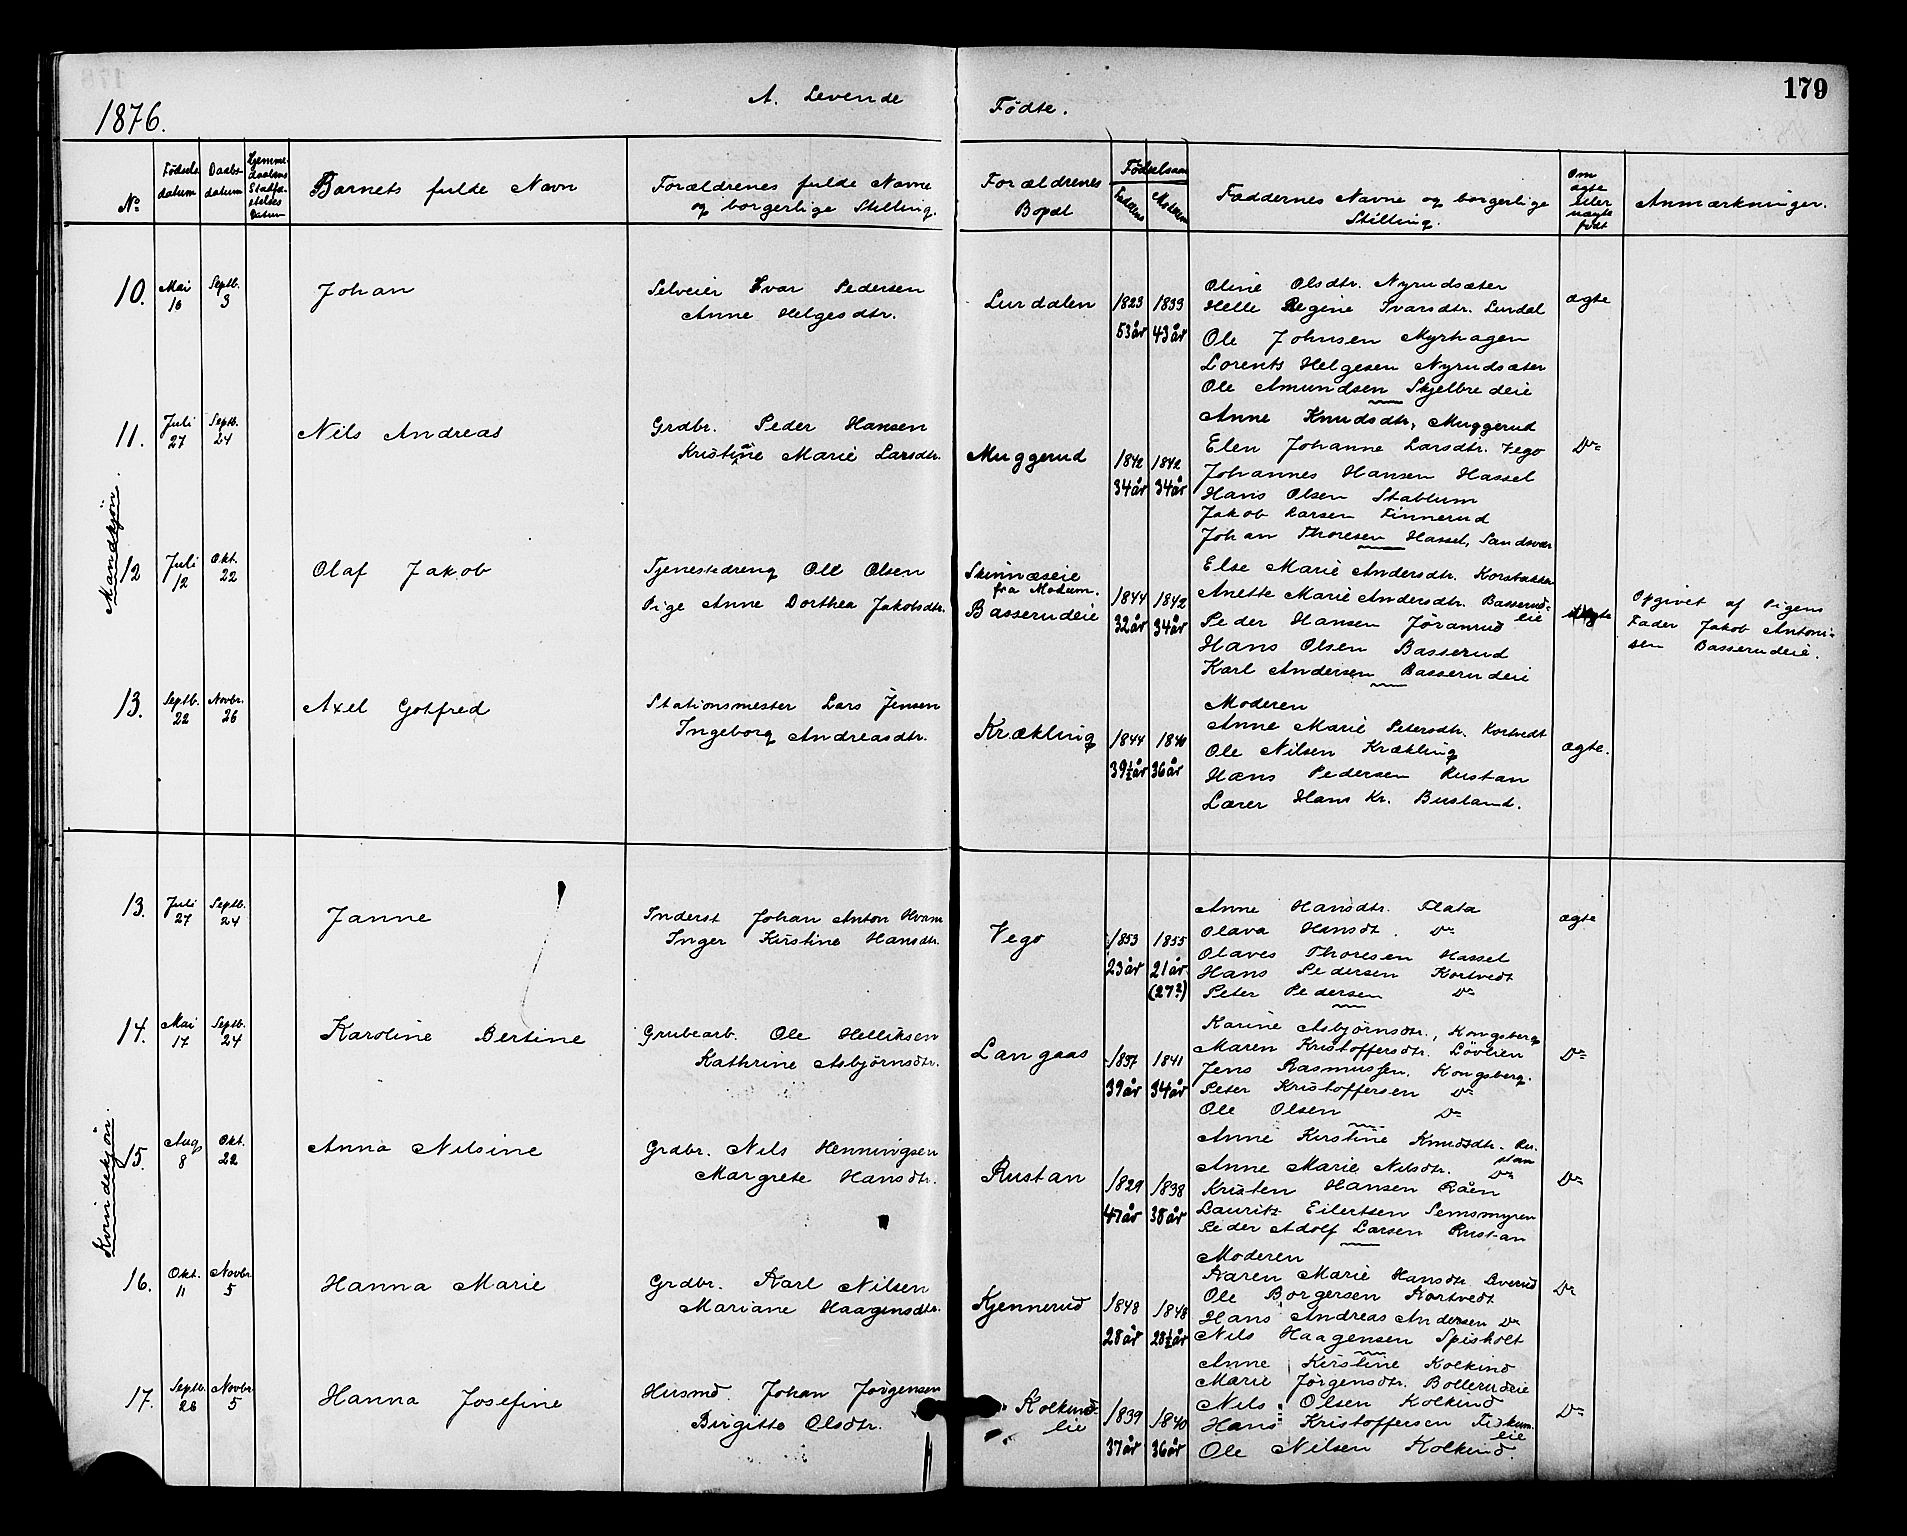 179
1876.
A. Levende Fødte.
No
Fødsels datum
Daabs datum
Hjemme daabens Stadfæstelses Datum
Barnets fulde Navn
Forældrenes fulde Navne og borgerlige Stilling.
Forældrenes Bopæl
Fødselsaar
Faderens
Moderens
Faddernes Navne og borgerlige Stilling.
Om ægte eller uægte født
Anmærkninger.
Mandkjøn.
10. Mai 16 Septb. 3 Johan
Selveier Ivar Pedersen
Anne Helgesdtr.
Lurdalen 1823 1833
53 år 43 år
Oline Olsdtr. Nyrudsæter
Helle Regine Ivarsdtr. Lurdal
Ole Johnsen Myrhagen
Lorents Helgesen Nyrudsæter
Ole Amundsen Skjelbredeie
ægte
11. Juli 27 Septb. 24 Nils Andreas
Grdbr. Peder Hansen
Kristine Marie Larsdtr.
Muggerud 1842 1842
34 år 34 år
Anne Knudsdtr, Muggerud
Elen Johanne Larsdtr. Vego
Johannes Hansen Hassel
Hans Olsen Stablum
Jakob Larsen Finnerud
Johan Thoresen Hassel, Sandsvær
Do
12 Juli 12 Okt. 22 Olaf Jakob
Tjenestedreng Ole Olsen
Pige Anne Dorthea Jakobsdtr.
Skinnæseie fra Modum.
Basserudeie
1844 1842
32 år 34 år
Else Marie Andersdtr. Korsbakken
Anette Marie Andersdtr. Basserudeie
Peder Hansen Jøranrud
Hans Olsen Basserud
Karl Andersen Basserudeie
uægte
Opgivet af Pigens
Fader Jakob Antoni-
sen Basserudeie.
13. Septb. 22 Novbr. 26 Axel Gotfred
Stationsmester Lars Jensen
Ingeborg Andreasdtr.
Krækling 1844 1840
39½ år 36 år
Moderen
Anne Marie Petersdtr. Kortvedt
Ole Nilsen Krækling
Hans Pedersen Rustan
Lærer Hans Kr. Busland.
ægte.
Kvindekjøn.
13. Juli 27 Septb. 24 Janne
Inderst Johan Anton Hvam
Inger Kirstine Hansdtr.
Vego 1853 1855
23 år 21 år
(27?)
Anne Hansdtr. Flata
Olava Hansdt. Do
Olaves Thoresen Hassel
Hans Pedersen Kortvedt
Peter Pedersen Do
ægte
14. Mai 17 Septb. 24 Karoline Bertine
Grubearb. Ole Helliksen
Kathrine Asbjørnsdtr.
Langaas 1837 1841
39 år 34 år
Karine Asbjørnsdtr., Kongsberg
Maren Kristoffersdtr. Løvlien
Jens Rasmussen, Kongsberg.
Peter Kristoffersen Do
Ole Olsen Do
Do
15. Aug 8 Okt. 22 Anna Nilsine
Grdbr. Nils Henningsen
Margrete Hansdtr.
Rustan 1829 1838
47 år 38 år
Anne Kirstine Knudsdtr. Rustan
Anne Marie Nilsdtr. Do
Kristen Hansen Råen
Lauritz Eilertsen Semsmyren
Peder Adolf Larsen Rustan
Do
16. Okt. 11 Novbr 5 Hanna Marie
Grdbr. Karl Nilsen
Mariane Haagensdtr.
Kjennerud 1848 1848
28 år 28½ år
Moderen
Karen Marie Hansdtr.
Ole Borgersen Kortvedt
Hans Andreas Andersen Do
Nils Haagensen Spisholt
Do
17. Septb. 26 Novbr 5 Hanna Josefine
Husmd Johan Jörgensen
Birgitte Olsdtr.
Kolkindeie 1839 1840
37 år 36 år
Anne Kirstine Kolkind
Marie Jörgensdtr. Bollerudeie
Nils Olsen Kolkind
Hans Kristoffersen Fiskumeie
Ole Nilsen Kolkind.
Do